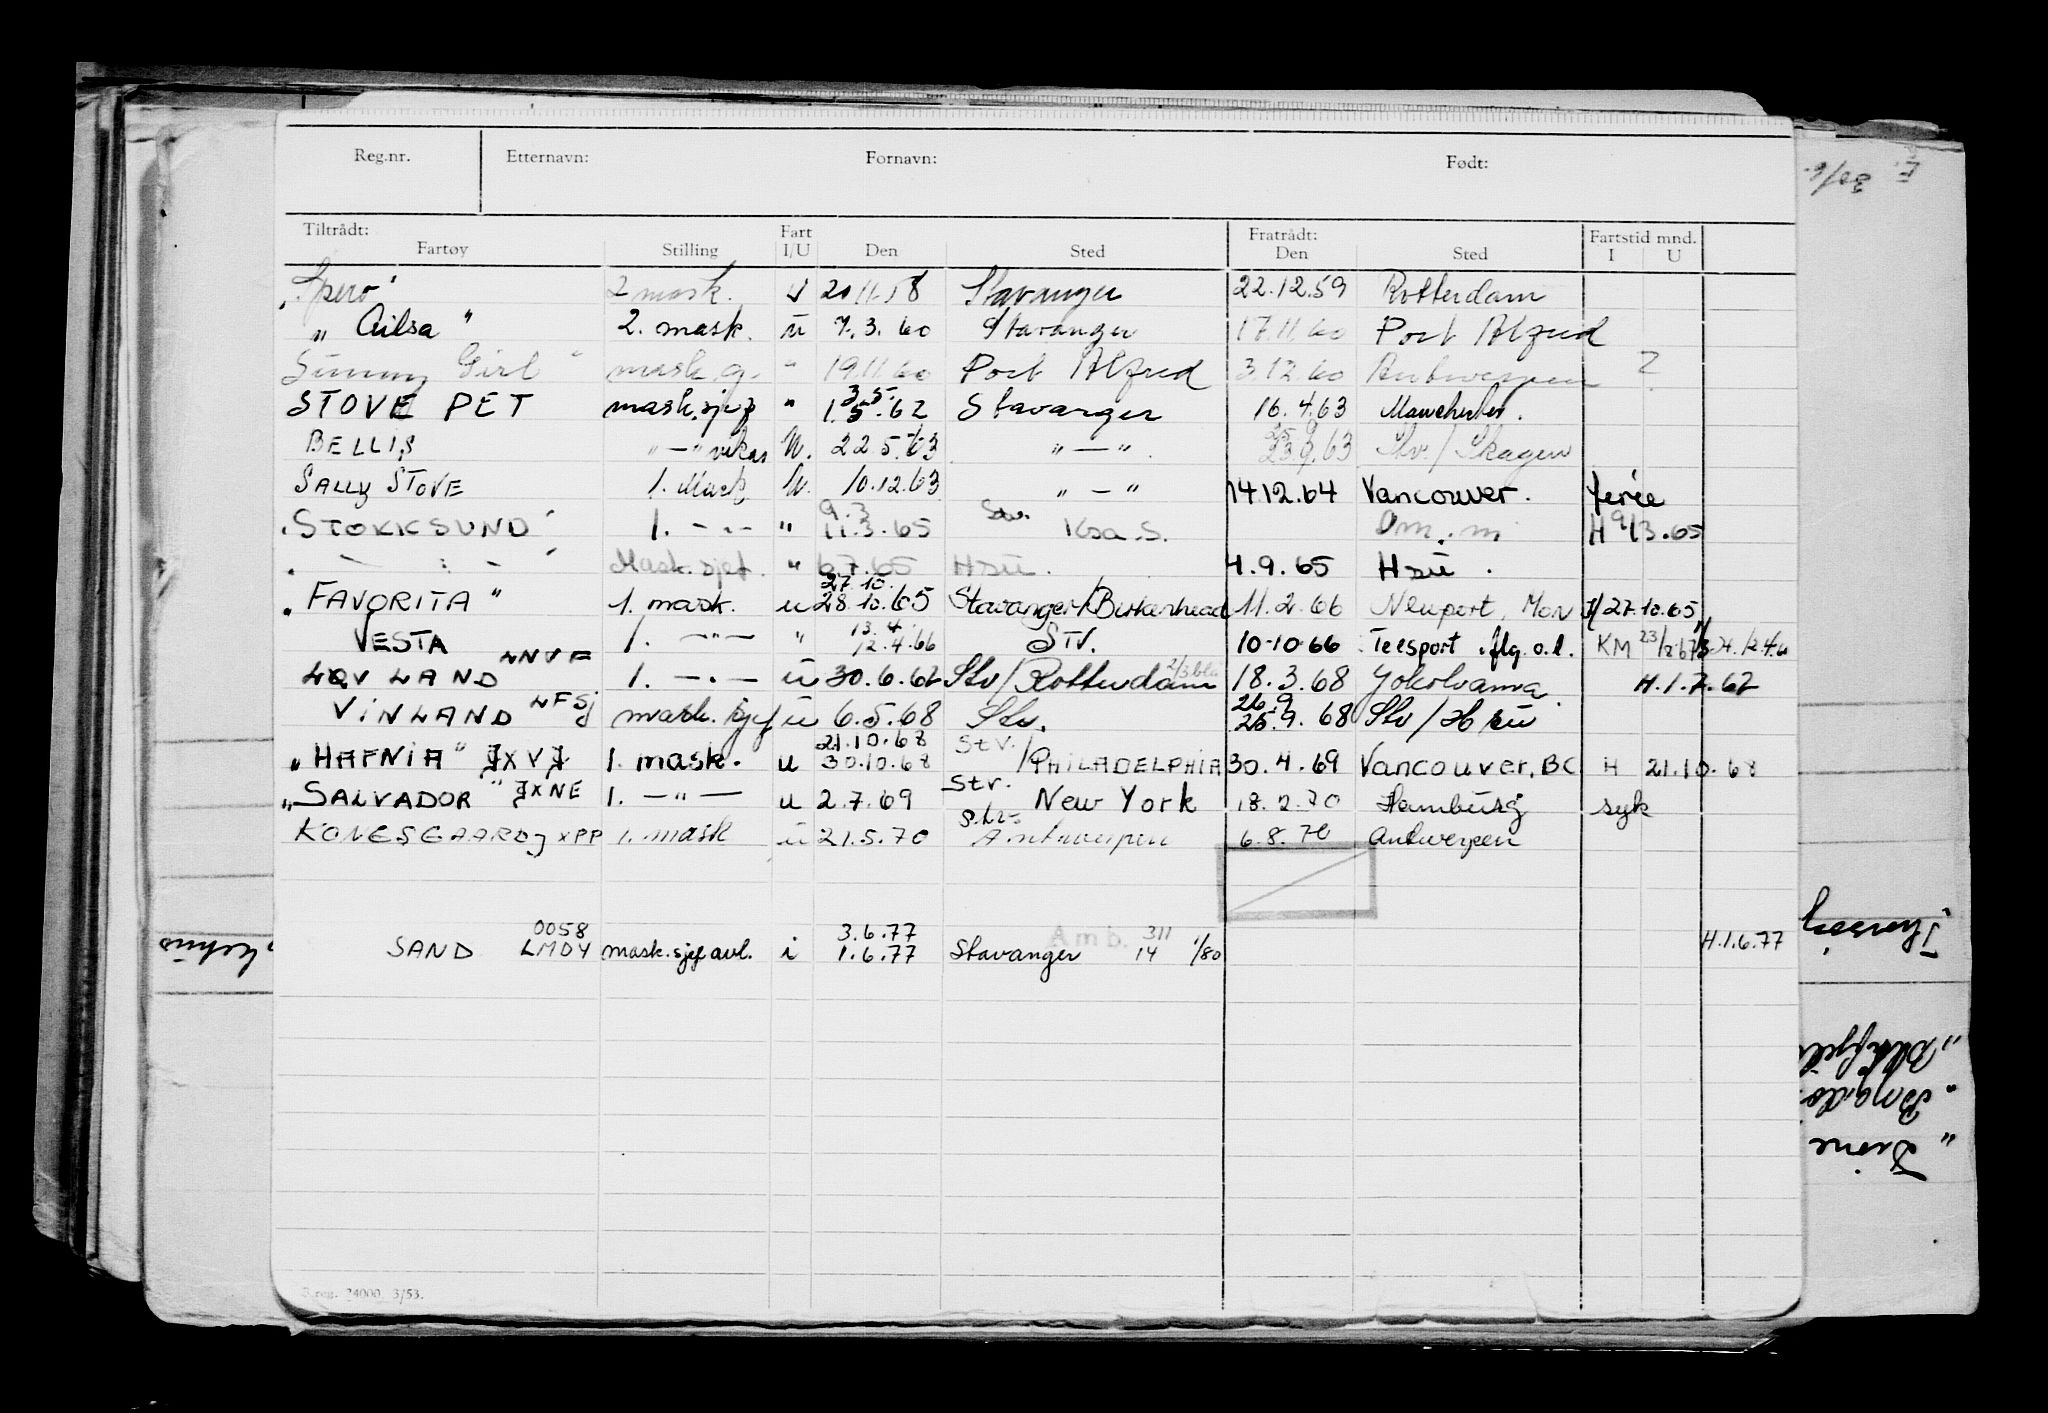 Reg.nr. Etternavn: Fornavn: Født:
Tiltrådt: Fartøy Stilling Fart I/U Den Sted Fratrådt: Den Sted Fartstid mnd. I U
"Spero" 2 mask. u 20.11.58 Stavanger 22.12.59 Rotterdam
"Ailsa" 2. mask. u 7.3.60 Stavanger 17.11.60 Port Alfred
Sunny Girl " mask. " 19.11.60 Port Alfred 3.12.60 Antwerpen ?
STOVE PET mask.sjef " 3.5. 1.5.62 Stavanger 16.4.63 Manchester.
BELLIS "—" vikar U. 22.5.63 "—" . 25 9 23.9.63 Stv./Skagen
SALLY STOVE 1. Mask U. 10.12.63 "—" 14 12.64 Vancouver. ferie
"STOKKSUND" 1. —"— " 9.3 11.3.65 Stv. Ksa.S. Om. m H 9/3.65
" — " — " Mask.sjef. " 6.7.65 HSU. 4.9.65 HSU.
"FAVORITA" 1. mask. u 27.10. 28.10.65 Stavanger/Birkenhead 11.2.66 Newport, Mon H/27.10.65
VESTA 1. —"— " 13.4. 12.4.66 STV. 10-10 66 Teesport .flg.o.l. KM 23/
LOVLAND LNVF 1. —"— u 30.6.67 Stv/Rotterdam 18.3.68 Yokohama. H.1.7.67
VINLAND LFSJ mask.sjef u 6.5.68 Stv. 26.9 25.9.68 Stv/HSU
"HAFNIA" JXVJ 1. mask. u 21.10.68 30.10.68 Stv./PHILADELPHIA 30.4.69 Vancouver, BC. H 21.10.68
"SALVADOR" JXNE 1. —"— u 2.7.69 Stv. New York 18.2.70 Hamburg syk
KONGSGAARD JXPP 1. mask u 21.5.70 Stv. Antwerpen 6.8.70 Antwerpen
SAND 0058 LMDY mask.sjef avl. i 3.6.77 1.6.77 Stavanger Amb. 311 14 1/80 H.1.6.77
24000 3/53.